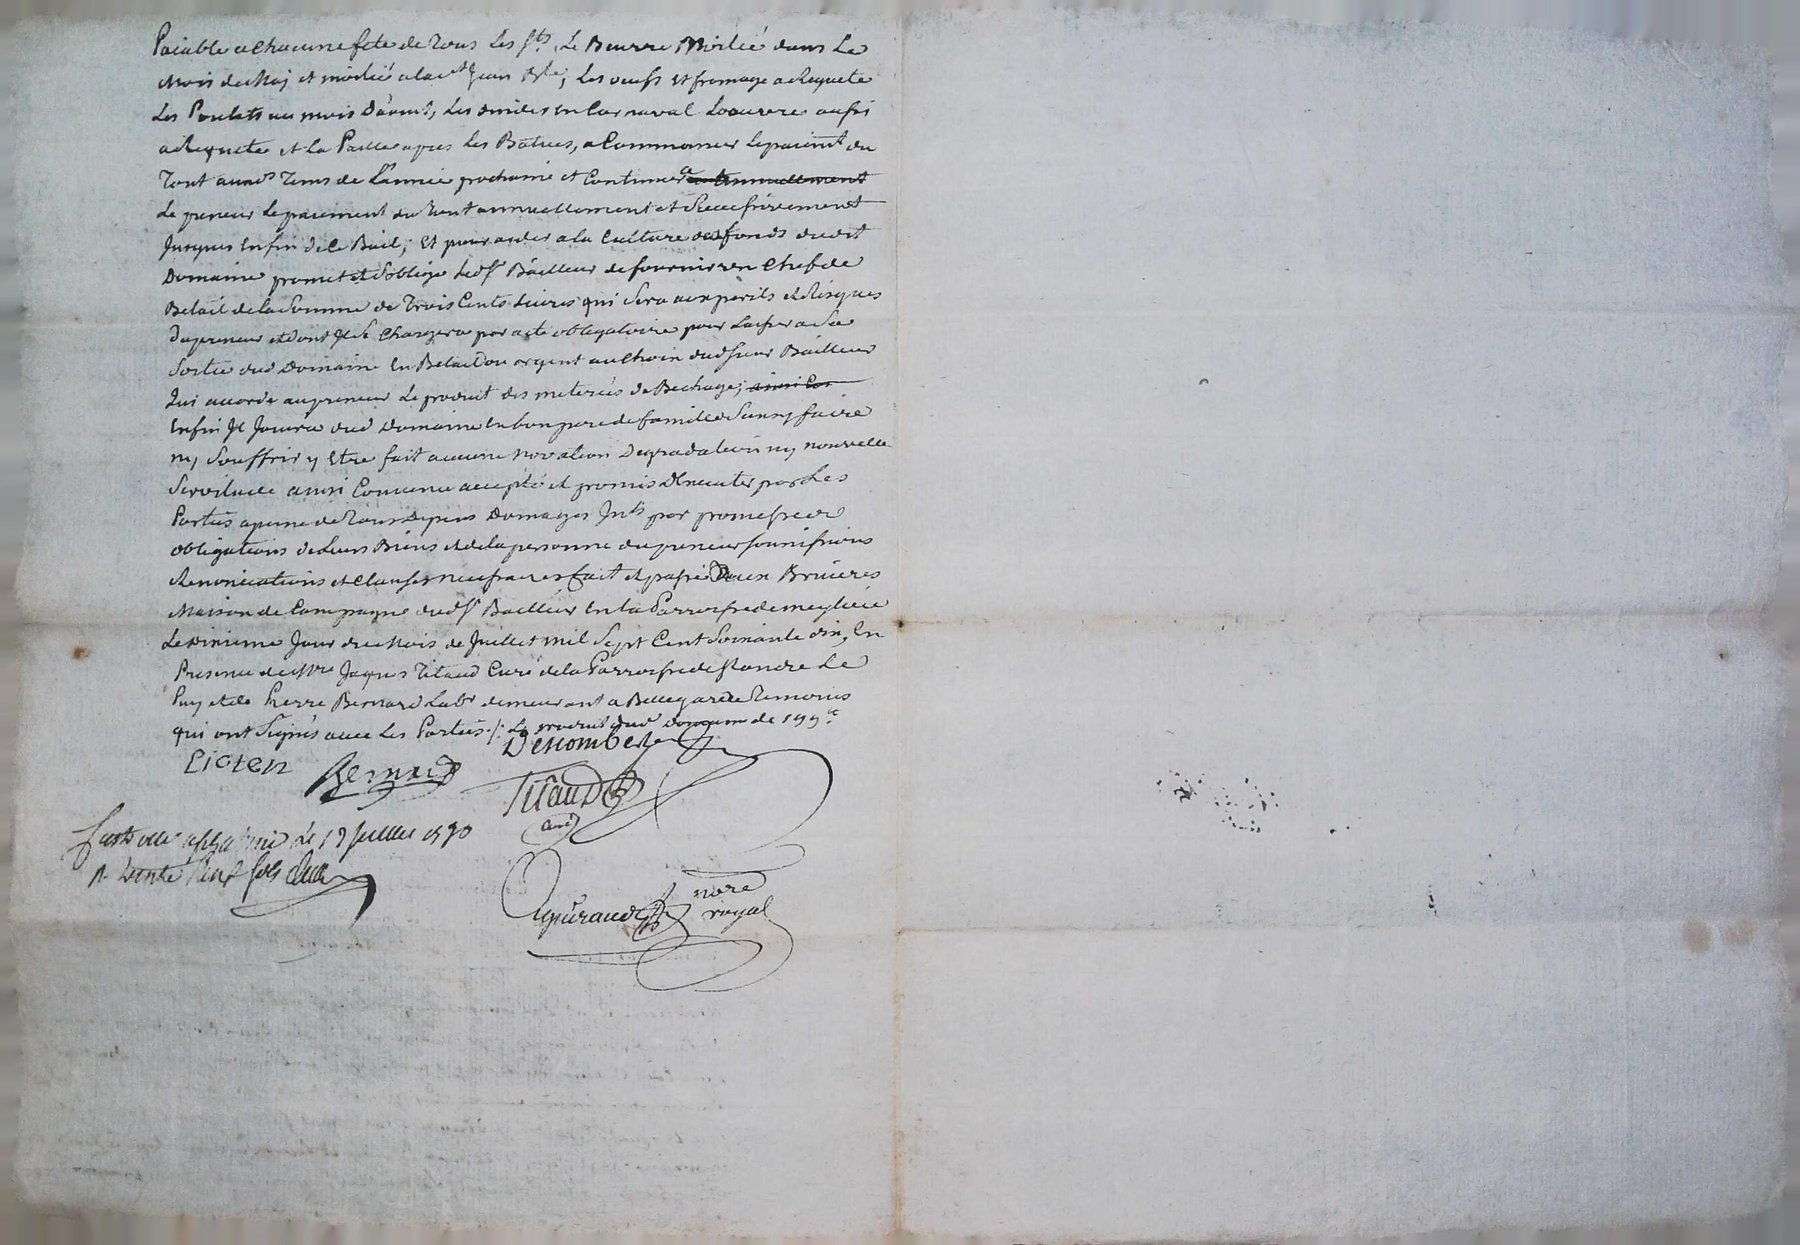 Paiable a Chacune fete de Tous les Sts, Le Beurre Moitié dans Le
Mois de Maj et moitié a la st Jean Bte, Les oeufs et fromage a Requete
Les Poulets au mois D'aout, Les dindes en Carnaval Loeuvre aussi
a Requete et La Paille apres Les Batues, a Commancer Le paiemt du
Tout aux ds Tems de L'année prochaine et Continuera annuellement
Le preneur Le paiement du tout annuellement et Successivement
Jusques En fin de Ce Bail; Et pour aider a la Culture des fonds dudit
Domaine promet et S'oblige Led sr Bailleur de fournir en Chef de
Betail de la Somme de Trois Cents Livres qui Sera aux périls et Risques
du preneur et dont Il Se Chargera par acte obligatoire pour Laisser a Sa
Sortie dud Domaine En Betail ou argent au Choix dud Sieur Bailleur
Qui accorde au preneur Le produit des de Bechage;
Enfin Il Jouira dud Domaine En bon pere de famille Sans y faire
ny Souffrir y Etre fait aucune novation Degradation ny nouvelle
Servitude ainsi Convenu accepté et promis D'Executer par Les
Parties a peine de Tous Depens Domages Jnts par promesse
obligations de Leurs Biens et de la personne du preneur soumissions
Renonciations et Clauses necessaires fait et passé Bruieres
Maison de Campagne dud sr Bailleur En la Parroisse de
Le Dixieme Jour du Mois de Juillet mil Sept Cent Soixante dix, En
Presence de Mre Jaques Titaud Curé de la Parroisse de st andre Le
Puy et de Pierre Bernard Labr demeurant a Bellegarde Temoins
qui ont Signés avec Les Parties ./. Le produit dud domaine de 199#
Bernard
Titaud
curé
Le 19 Juillet 1770
sols
nore
royal